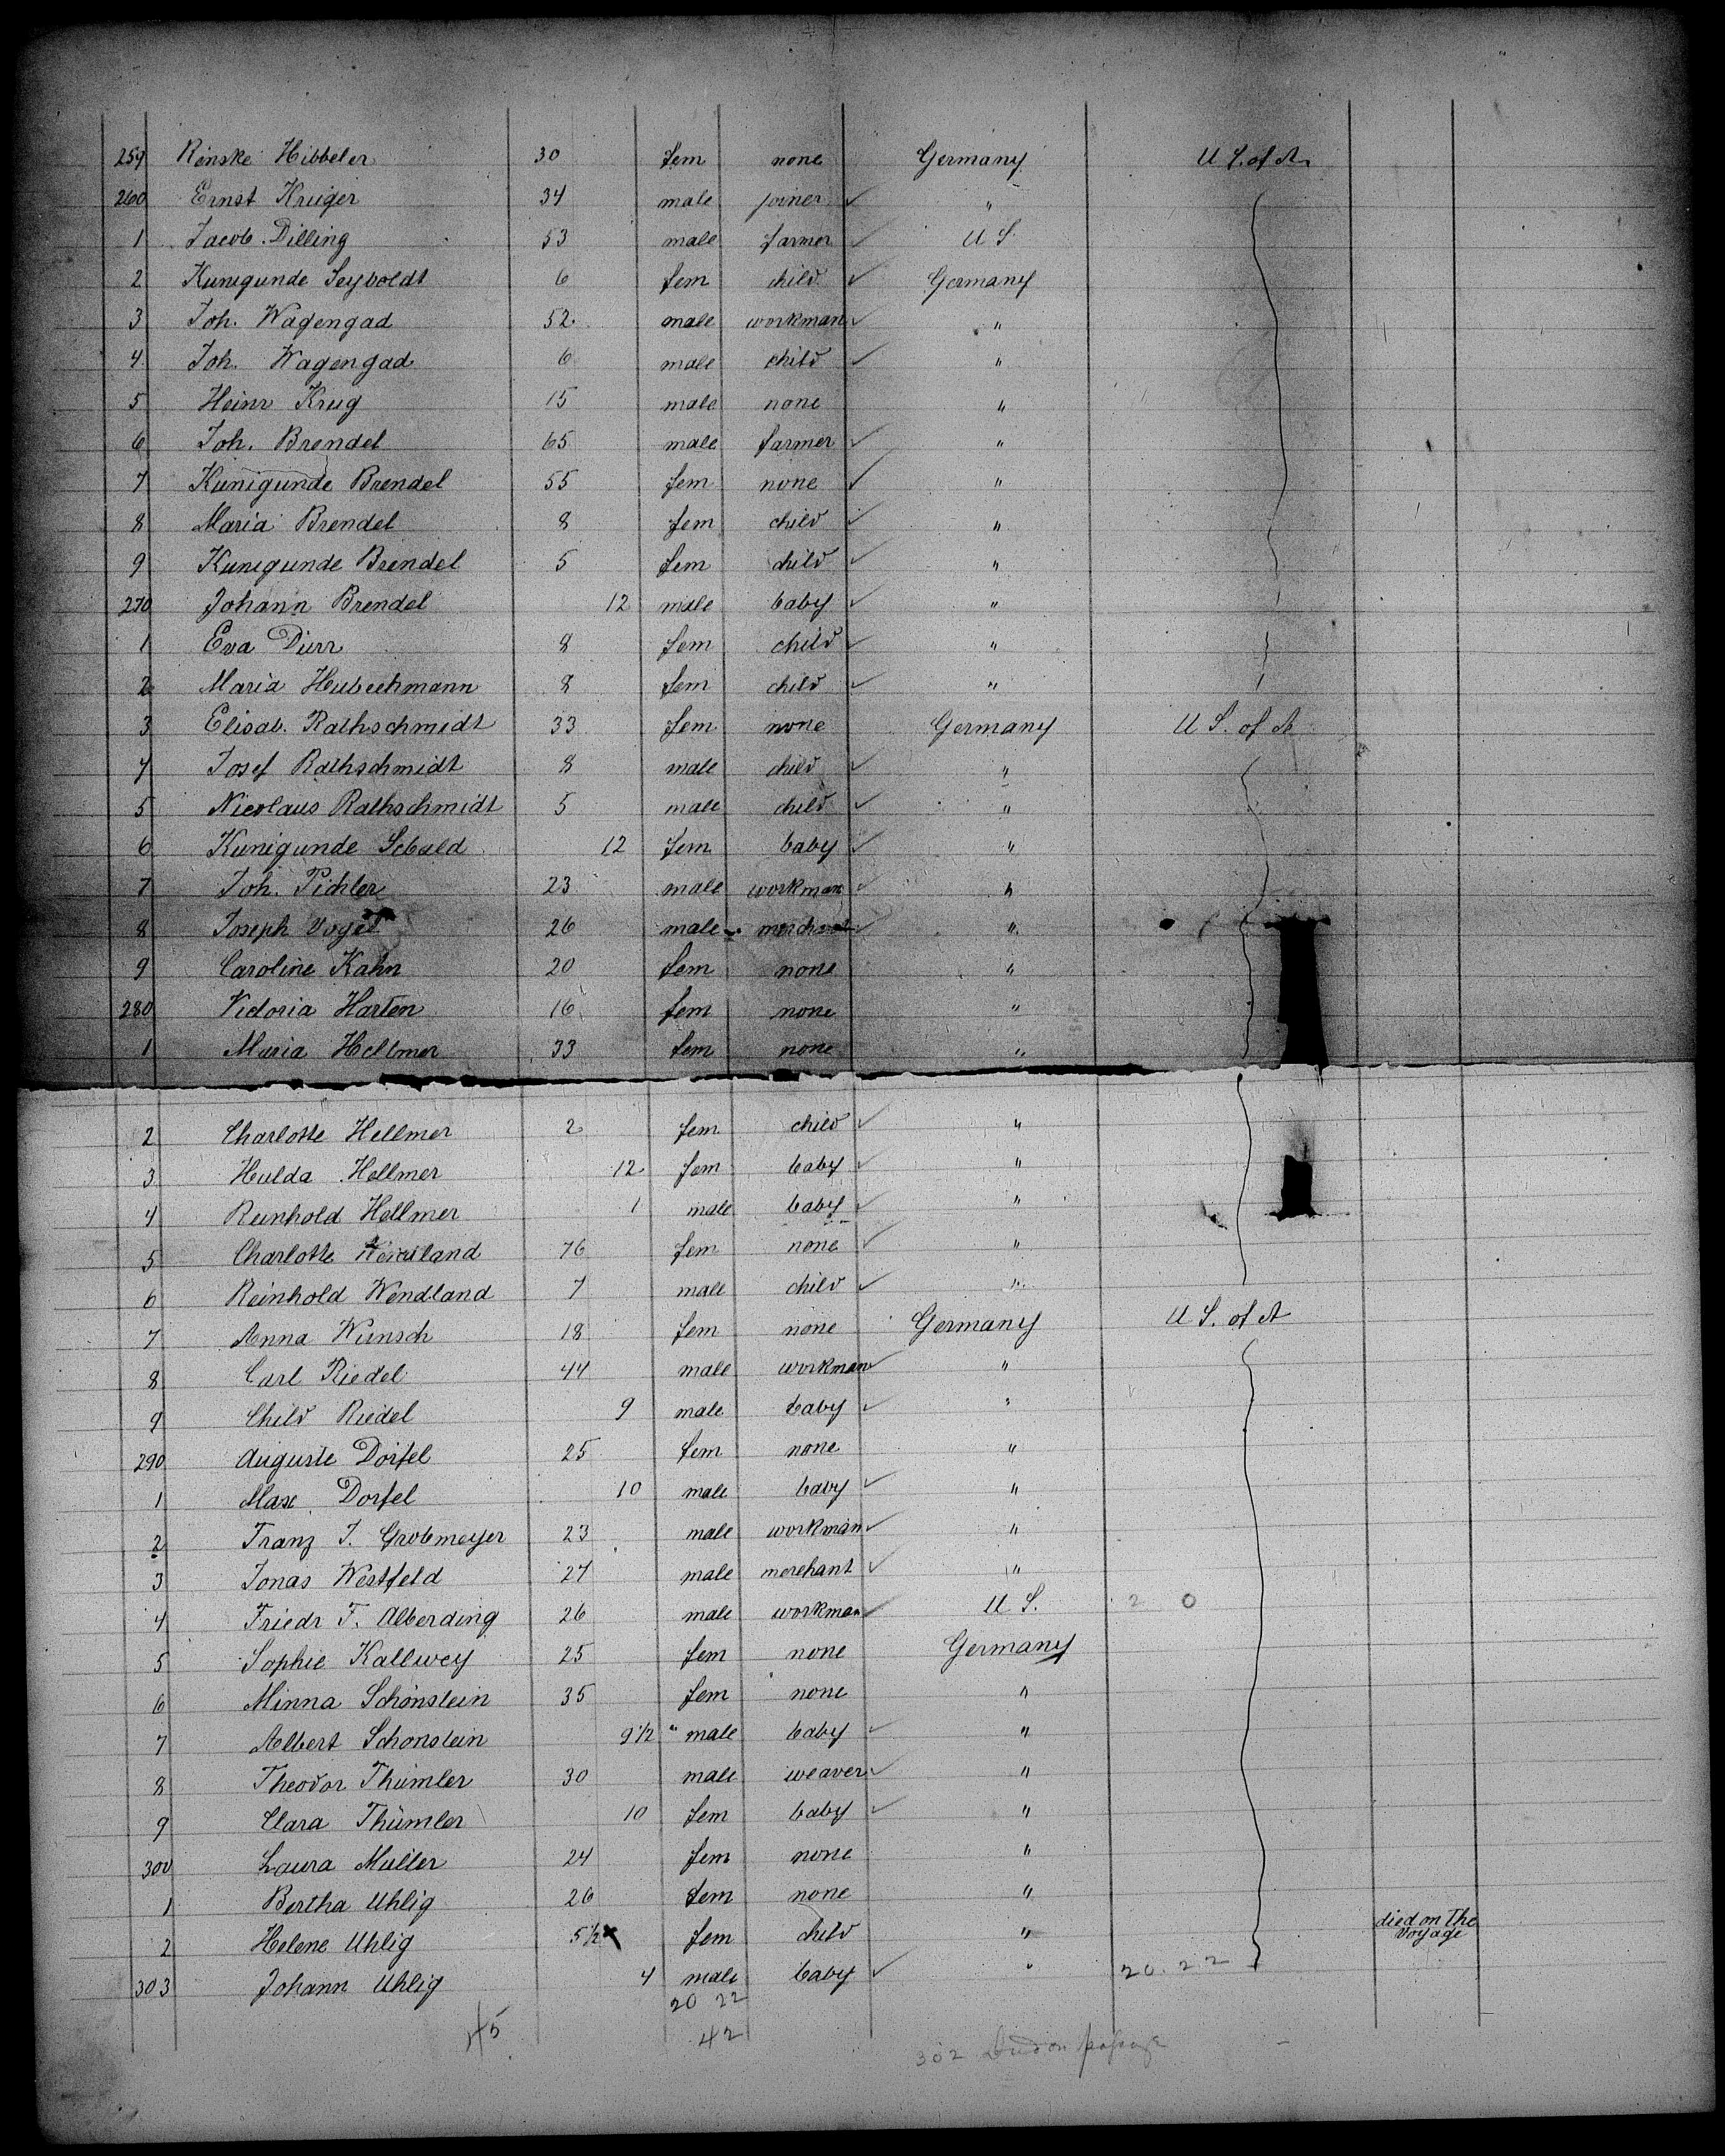 259 Renske Hibbeler 30 fem none Germany U S. of A.
260 Ernst Kruger 34 male joiner ✓ "
1 Jacob Dilling 53 male farmer ✓ U S.
2 Kunigunde Seyboldt 6 fem child ✓ Germany
3 Joh. Wagengad 52 male workman ✓ "
4 Joh. Wagengad 6 male child ✓ "
5 Heinr Krug 15 male none "
6 Joh. Brendel 65 male farmer ✓ "
7 Kunigunde Brendel 55 fem none ✓ "
8 Maria Brendel 8 fem child ✓ "
9 Kunigunde Brendel 5 fem child ✓ "
270 Johann Brendel 12 male baby ✓ "
1 Eva Dürr 8 fem child ✓ "
2 Maria Heubechmann 8 fem child ✓ "
3 Elisab. Rathschmidt 33 fem none Germany U S. of A
4 Josef Rathschmidt 8 male child ✓ "
5 Nicolaus Rathschmidt 5 male child ✓ "
6 Kunigunde Sebald 12 fem baby ✓ "
7 Joh. Pichler 23 male workman ✓ "
8 Joseph Vogel 26 male merchant ✓ "
9 Caroline Kahn 20 fem none "
280 Victoria Harten 16 fem none "
1 Maria Hellmer 33 fem none "
2 Charlotte Hellmer 2 fem child ✓ "
3 Hulda Hellmer 12 fem baby ✓ "
4 Reinhold Hellmer 1 male baby ✓ "
5 Charlotte Wendland 76 fem none ✓ "
6 Reinhold Wendland 7 male child ✓ "
7 Anna Wunsch 18 fem none Germany U S. of A
8 Carl Riedel 44 male workman ✓ "
9 Child Riedel 9 male baby ✓ "
290 Auguste Dörfel 25 fem none "
1 Max Dorfel 10 male baby ✓ "
2 Franz J. Grobmeyer 23 male workman ✓ "
3 Jonas Westfeld 27 male merchant ✓ "
4 Friedr F. Alberding 26 male workman ✓ U. S. 2 0
5 Sophie Kallwey 25 fem none Germany
6 Minna Schönstein 35 fem none "
7 Albert Schonstein 9 1/2 " male baby ✓ "
8 Theodor Thümler 30 male weaver ✓ "
9 Clara Thümler 10 fem baby ✓ "
300 Laura Muller 24 fem none "
1 Bertha Uhlig 26 fem none "
2 Helene Uhlig 5 1/2 x fem child " died on The Voyage
303 Johann Uhlig 4 male baby ✓ " 20. 22
20 22
45 42
302 Died on passage